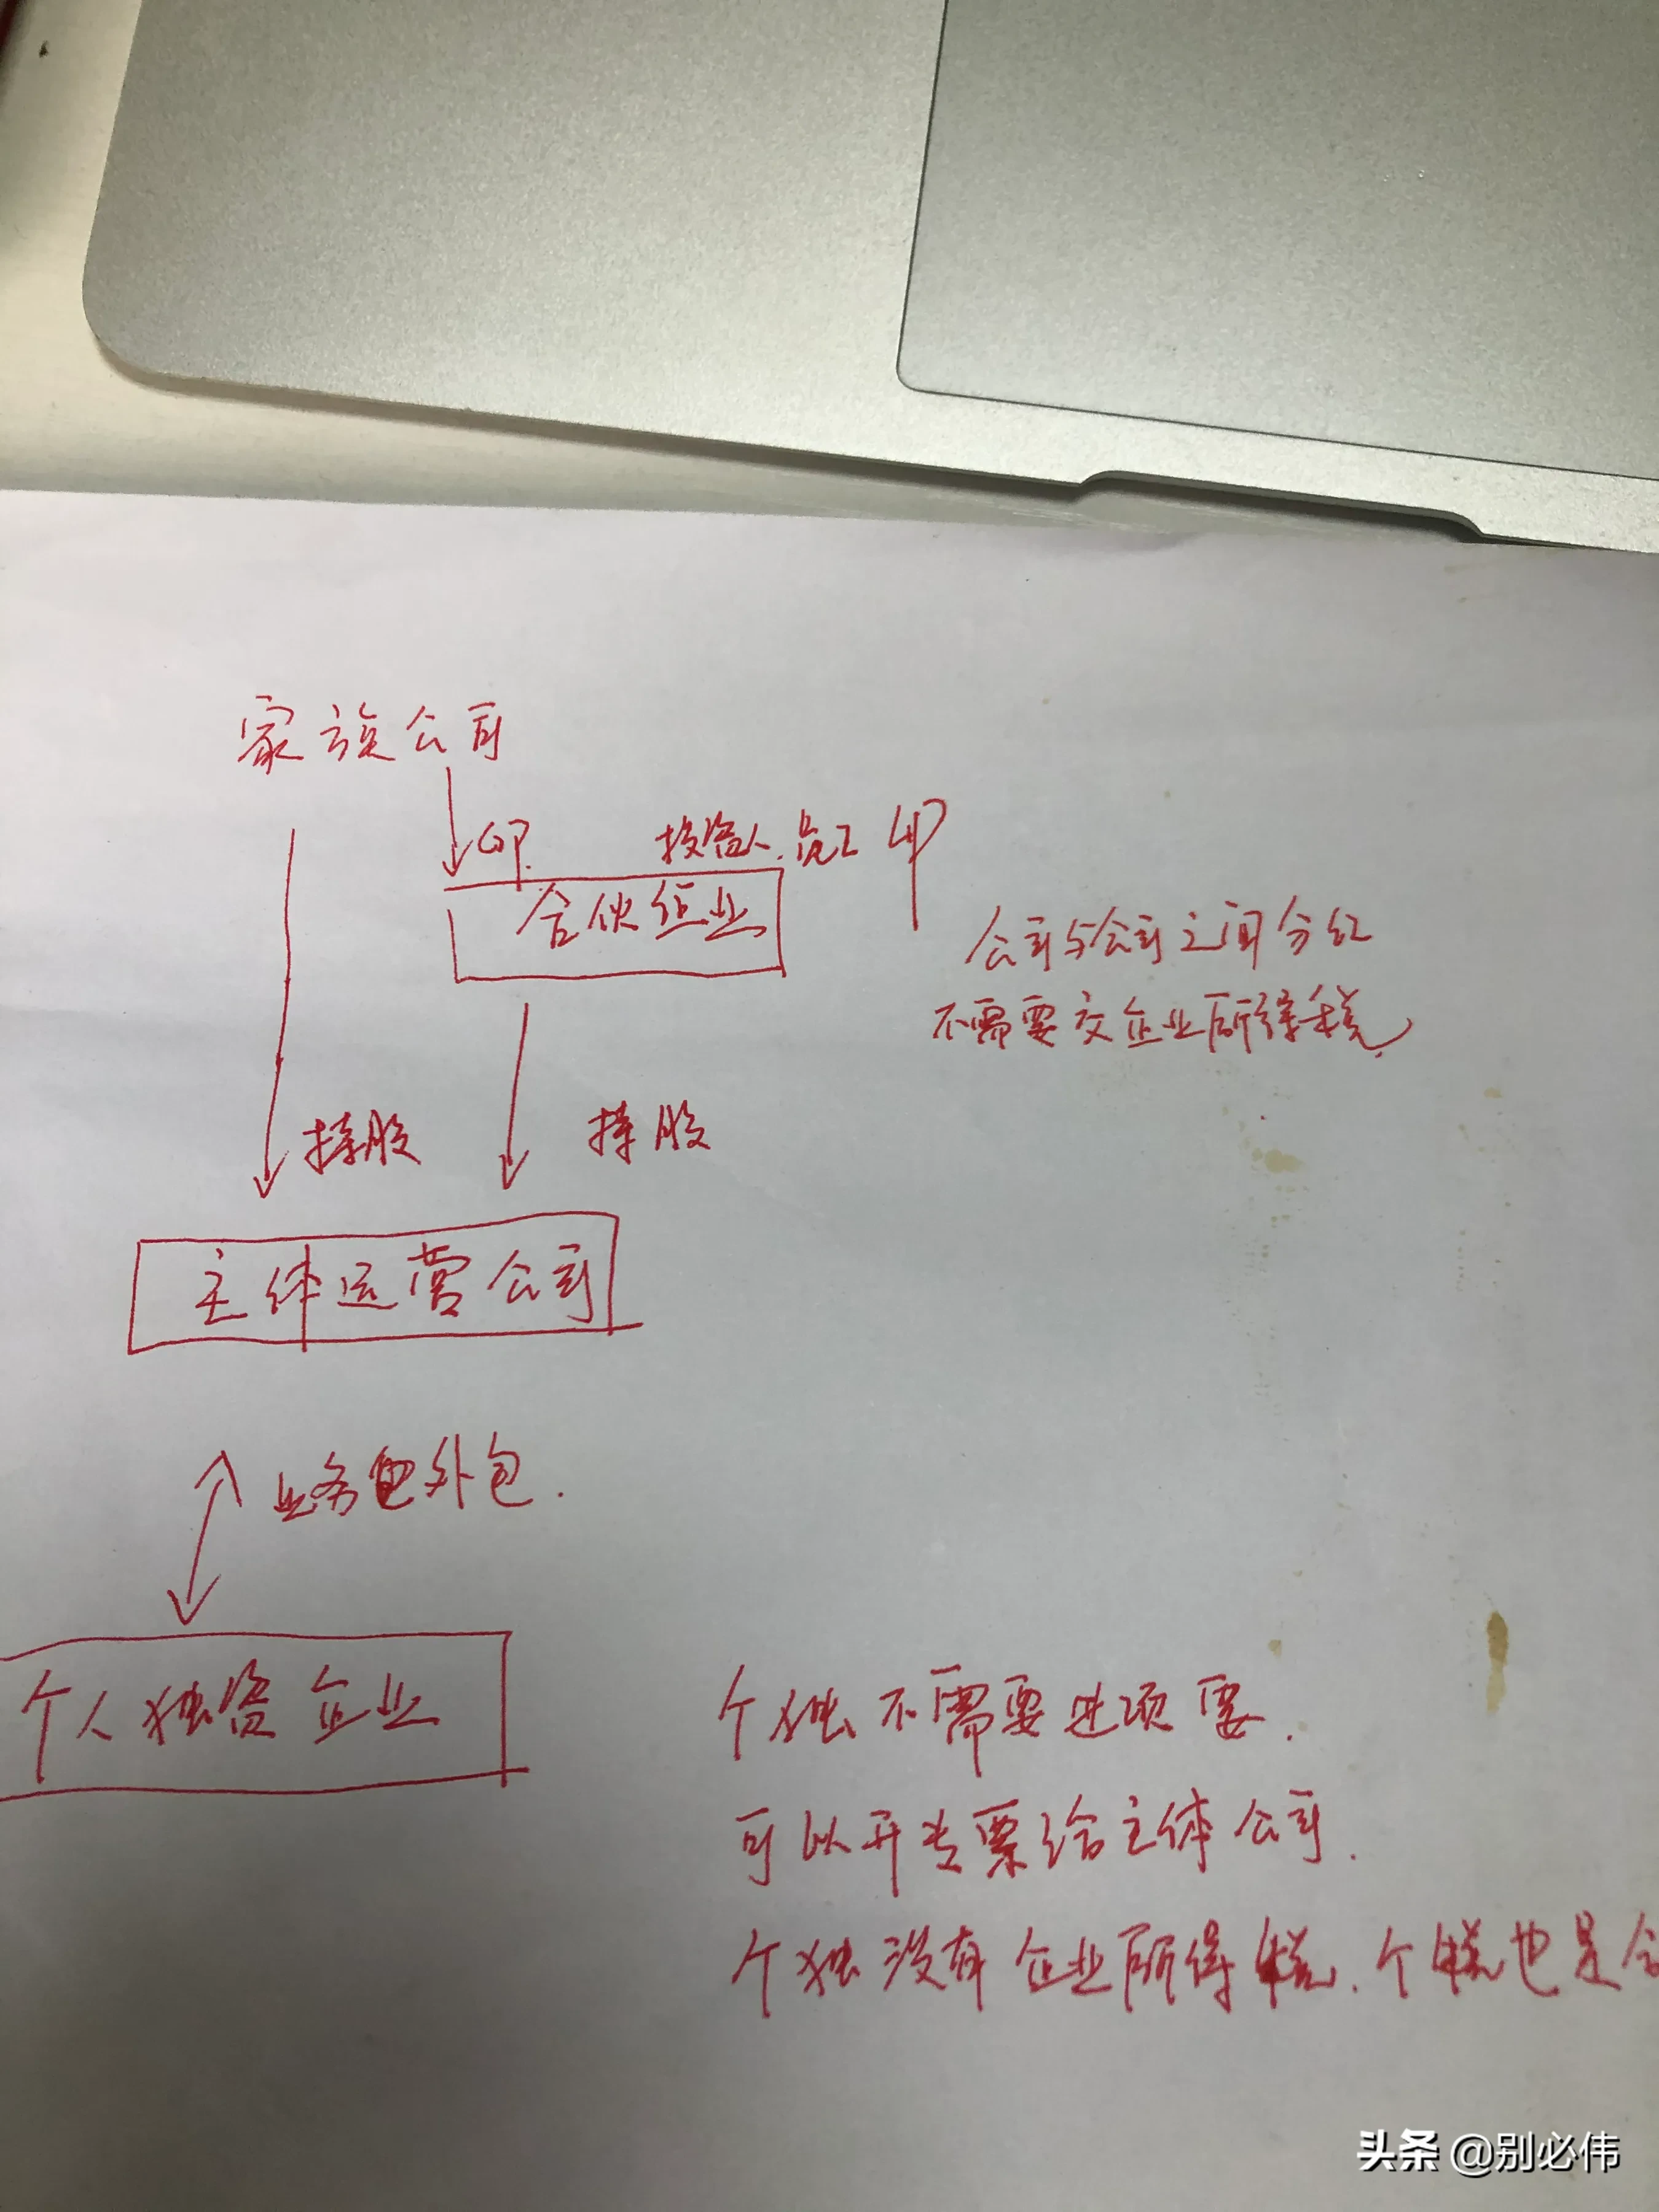 家族公司
GP. 投资人.员工 LP
合伙企业
公司与公司之间分红
不需要交企业所得税.
持股 持股
主体运营公司
业务外包.
个人独资企业
个独不需要进项票.
可以开专票给主体公司.
个独没有企业所得税.个税也是
头条 @别必伟